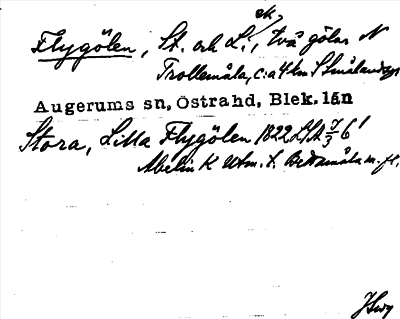 ek.
Flygölen, St. och L:, två gölar N
Trollemåla, c:a 4 km S Smålandsgr.
Augerums sn, Östrahd, Blek. län
Stora, Lilla Flygölen 1822 LSA 7/3 6'
Abelin K Utm. t. Bettamåla m. fl.